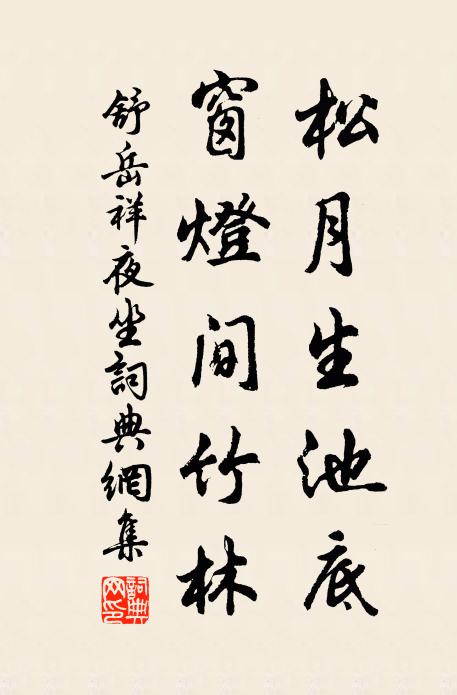 松月生池底
窗燈間竹林
舒岳祥夜坐詞典網集
詞典
网印